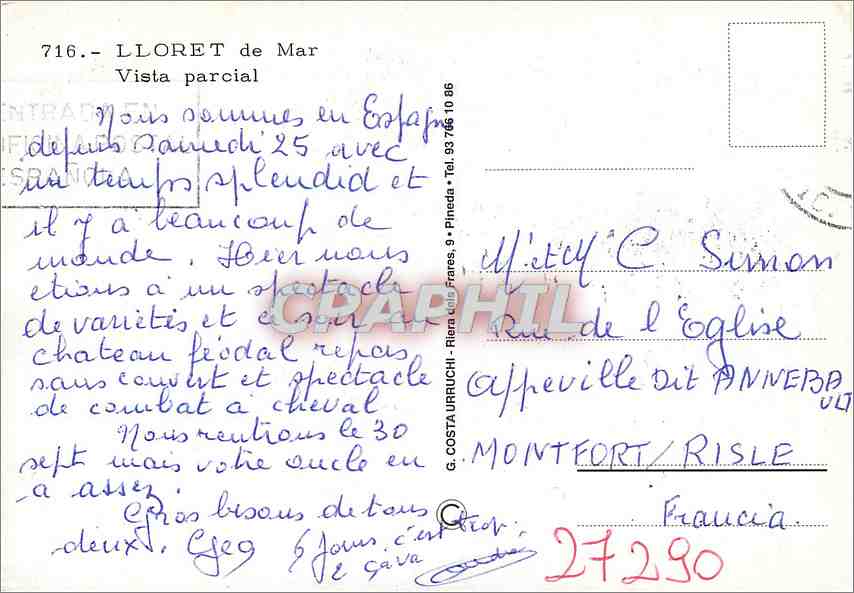 716.- LLORET de Mar
Vista parcial
ENTRADA EN
OFICINA POSTAL
ESPAÑOLA
Nous sommes en Espagne
depuis Samedi 25 avec
un temps splendid et
il y a beaucoup de
monde. Hier nous
etions à un spectacle
de variétés et ce soir au
chateau féodal repas
sans couvert et spectacle
de combat à cheval
Nous rentrons le 30
sept mais votre oncle en
a assez.
Gros bisous de tous
deux. Geg
6 jours c'est trop.
2 ça va
G. COSTA URRUCHI - Riera dels Frares, 9 • Pineda • Tel. 93 766 10 86
C
M et M C. Simon
Rue de l'Eglise
Appeville Dit ANNEBA
ULT
MONTFORT/RISLE
Francia.
27290
CPAPHIL